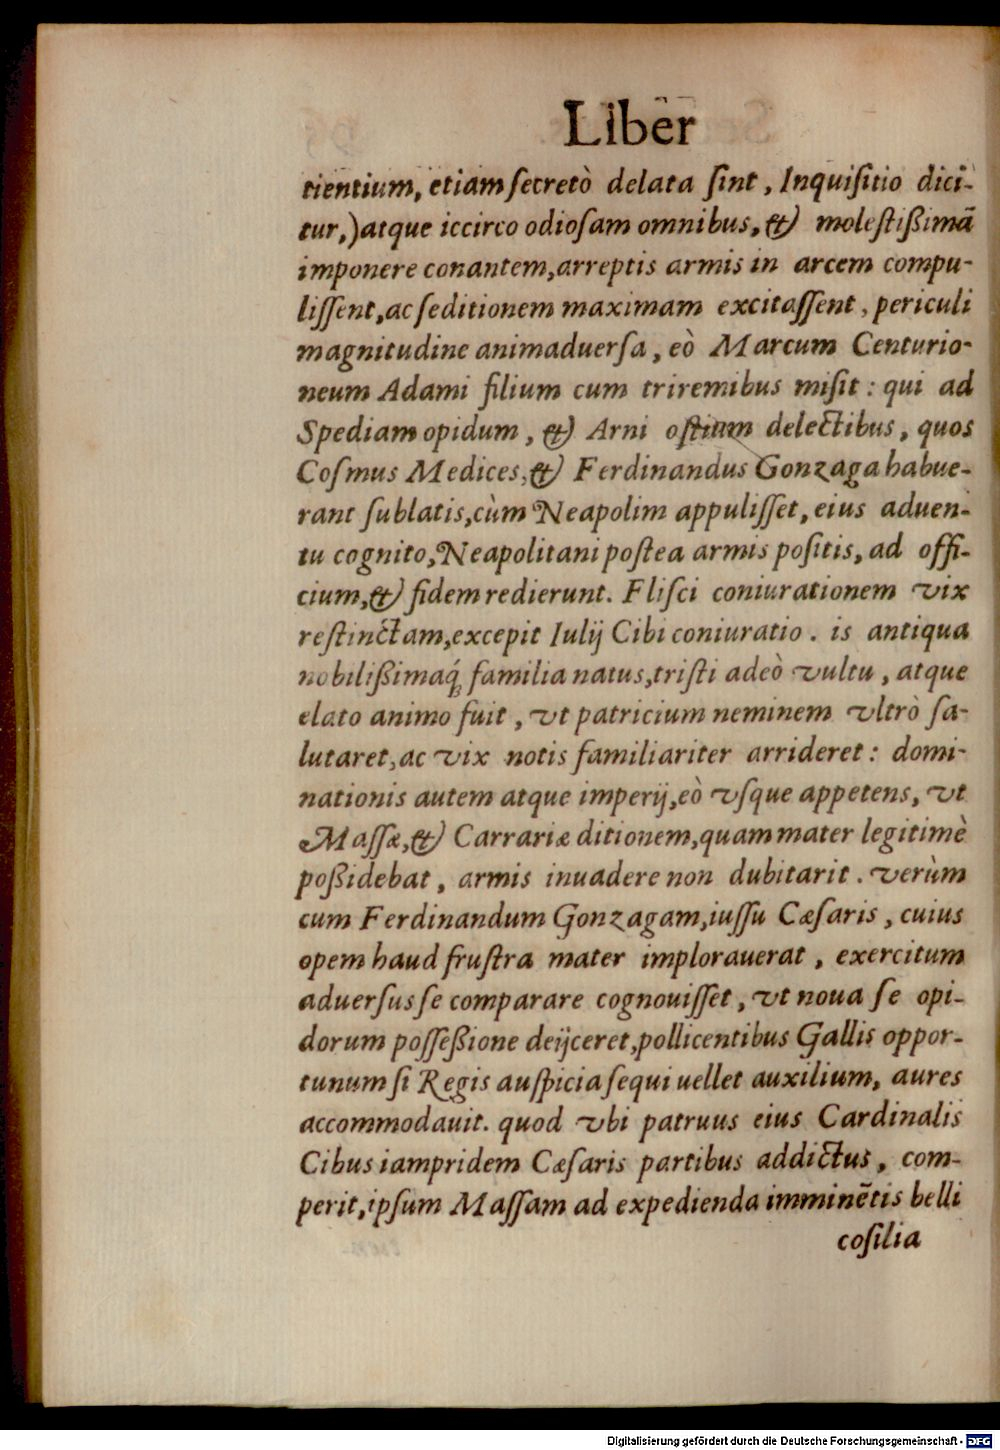 Liber
tientium, etiam ſecretò delata ſint, Inquiſitio dici-
tur,) atque iccirco odioſam omnibus, & moleſtißimā
imponere conantem, arreptis armis in arcem compu-
liſſent, ac ſeditionem maximam excitaſſent, periculi
magnitudine animaduerſa, eò Marcum Centurio-
neum Adami filium cum triremibus miſit: qui ad
Spediam opidum, & Arni oſtium delectibus, quos
Coſmus Medices, & Ferdinandus Gonzaga habue-
rant ſublatis, cùm Neapolim appuliſſet, eius aduen-
tu cognito, Neapolitani poſtea armis poſitis, ad offi-
cium, & fidem redierunt. Fliſci coniurationem vix
reſtinctam, excepit Iulij Cibi coniuratio. is antiqua
nobilißimaq́; familia natus, triſti adeò vultu, atque
elato animo fuit, vt patricium neminem vltrò ſa-
lutaret, ac vix notis familiariter arrideret: domi-
nationis autem atque imperij, eò vſque appetens, vt
Maſſæ, & Carrariæ ditionem, quam mater legitimè
poßidebat, armis inuadere non dubitarit. verùm
cum Ferdinandum Gonzagam, iuſſu Cæſaris, cuius
opem haud fruſtra mater implorauerat, exercitum
aduerſus ſe comparare cognouiſſet, vt noua ſe opi-
dorum poſſeßione deijceret, pollicentibus Gallis oppor-
tunum ſi Regis auſpicia ſequi uellet auxilium, aures
accommodauit. quod vbi patruus eius Cardinalis
Cibus iampridem Cæſaris partibus addictus, com-
perit, ipſum Maſſam ad expedienda imminētis belli
coſilia
Digitalisierung gefördert durch die Deutsche Forschungsgemeinschaft - DFG